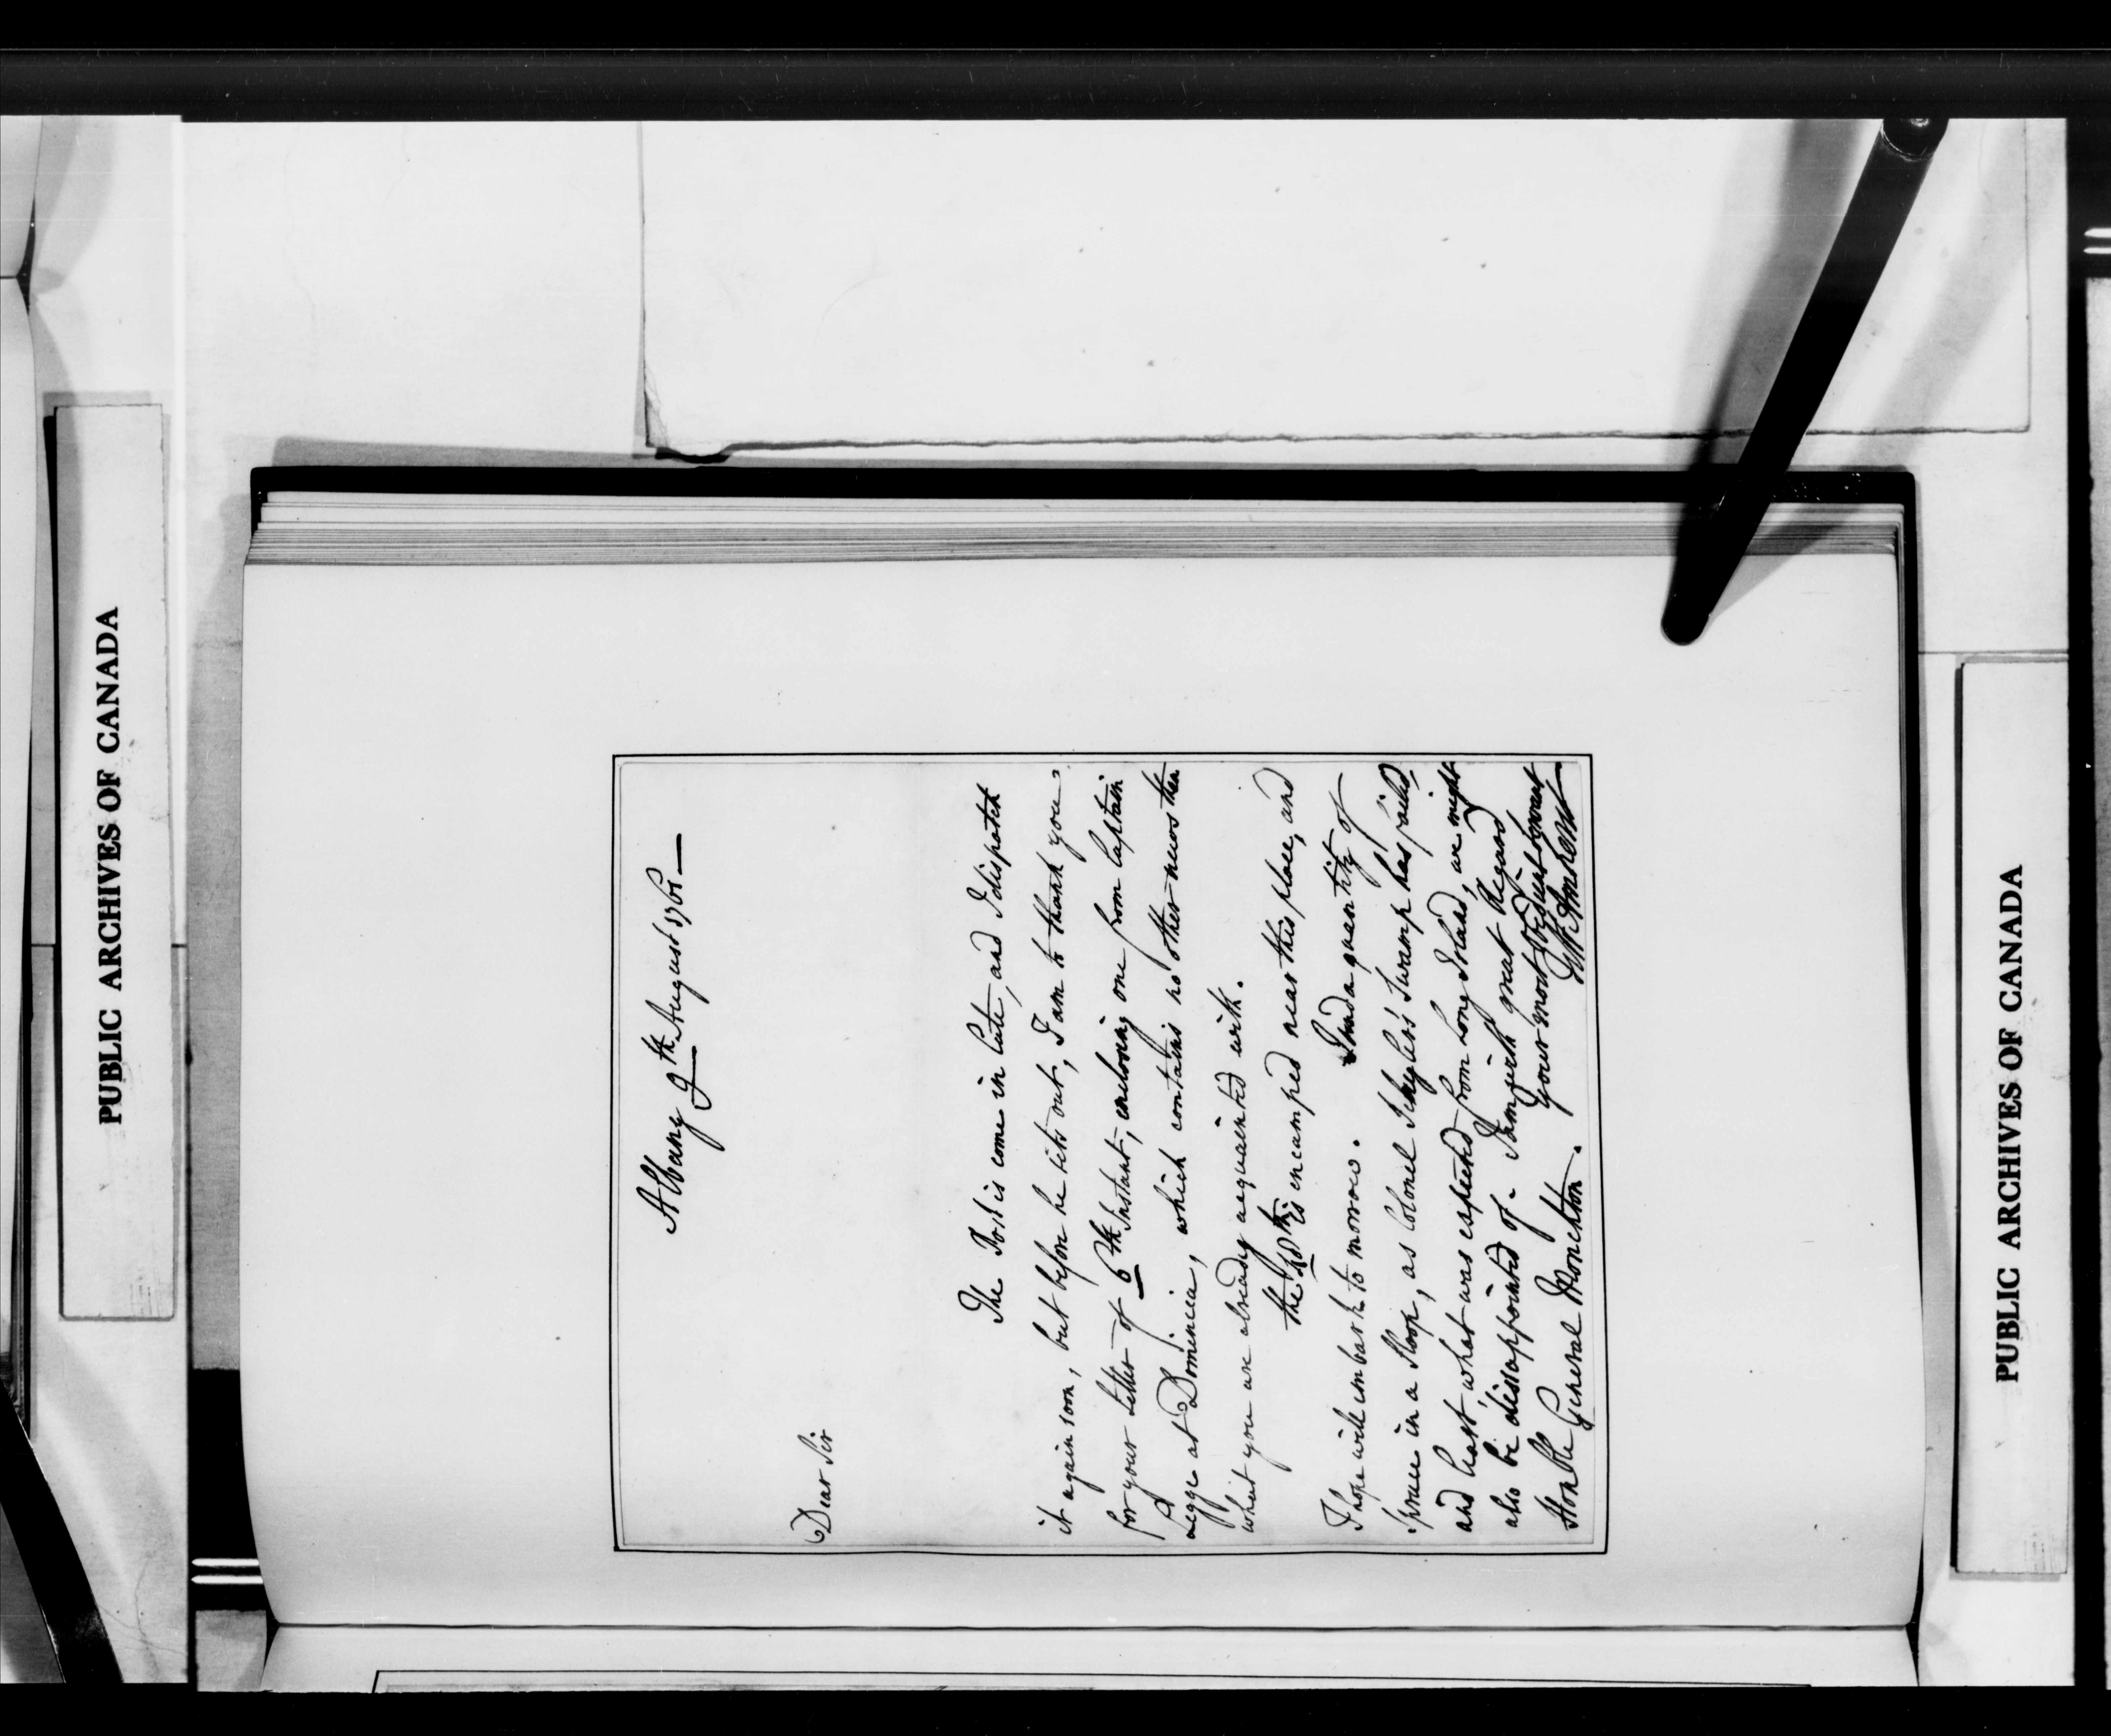 PUBLIC ARCHIVES OF CANADA
Albany 9th August 1761
Dear Sir
The Post is come in late, and I dispatch
it again soon, but before he sets out, I am to thank you
for your Letter of 6th Instant, enclosing one from Captain
Legge at Dominica, which contains no other news than
what you are already acquainted with.
the 48th is encamped near this place, and
I hope will embark to morrow. I send a quantity of
spruce in a Sloop, as Colonel Schyler's Swamp has failed,
and least what was expected from Long Island, we might
also be disappointed of. I am with great Regard
Your most Obedient Servant
Honble General Monckton. Jeff: Amherst
PUBLIC ARCHIVES OF CANADA